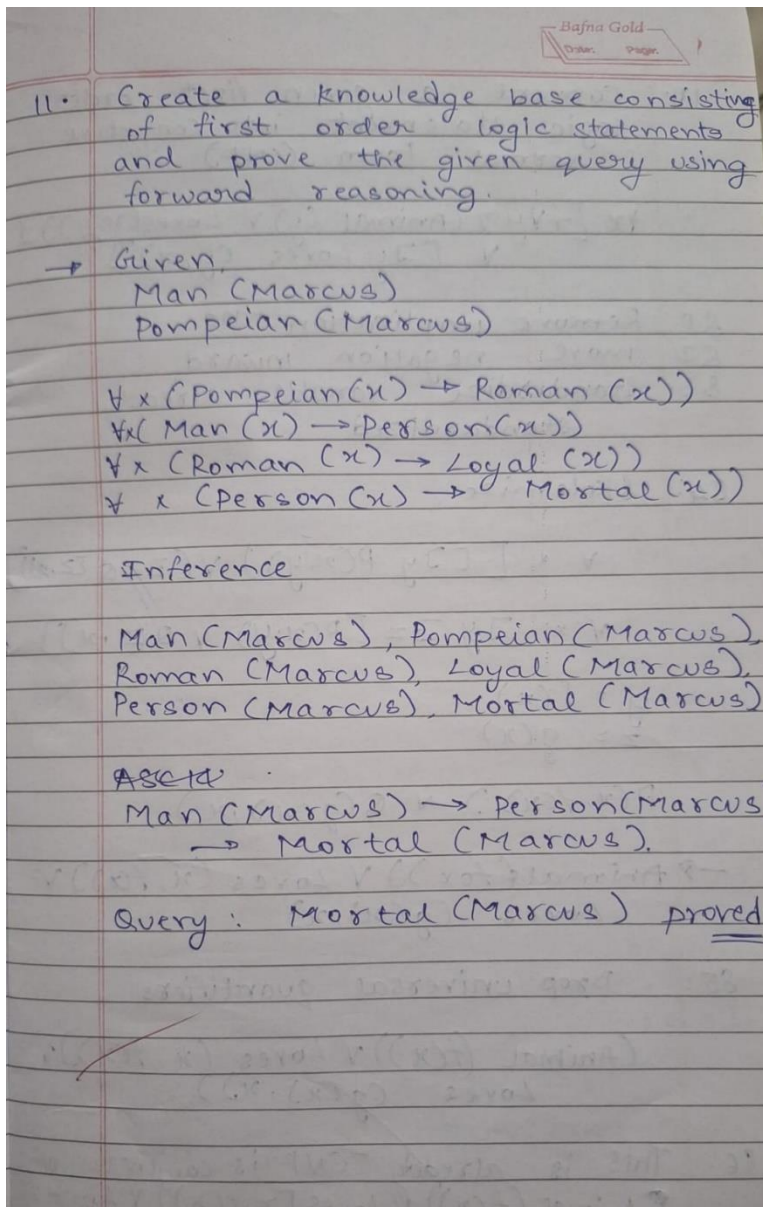 Bafna Gold
Date: Page:
11. Create a knowledge base consisting
of first order logic statements
and prove the given query using
forward reasoning.
→ Given,
Man (Marcus)
Pompeian (Marcus)
∀ x (Pompeian (x) → Roman (x))
∀x( Man (x) → Person(x))
∀ x (Roman (x) → Loyal (x))
∀ x (Person (x) → Mortal (x))
Inference
Man (Marcus), Pompeian (Marcus),
Roman (Marcus), Loyal (Marcus),
Person (Marcus), Mortal (Marcus)
Man (Marcus) → Person(Marcus
→ Mortal (Marcus).
Query : Mortal (Marcus) proved